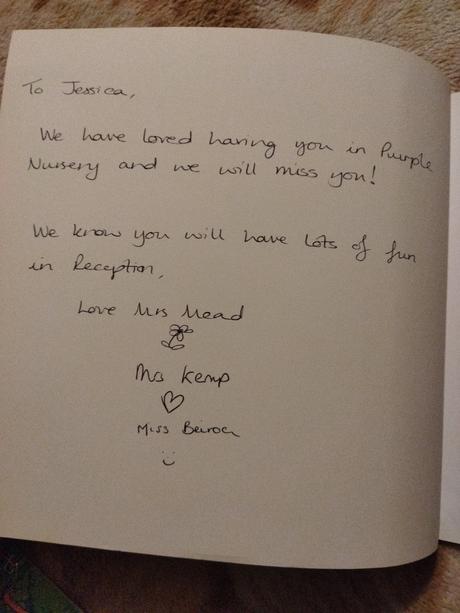 To Jessica,
We have loved having you in Purple
Nursery and we will miss you!
We know you will have lots of fun
in Reception,
Love Mrs Mead
Mrs Kemp
Miss